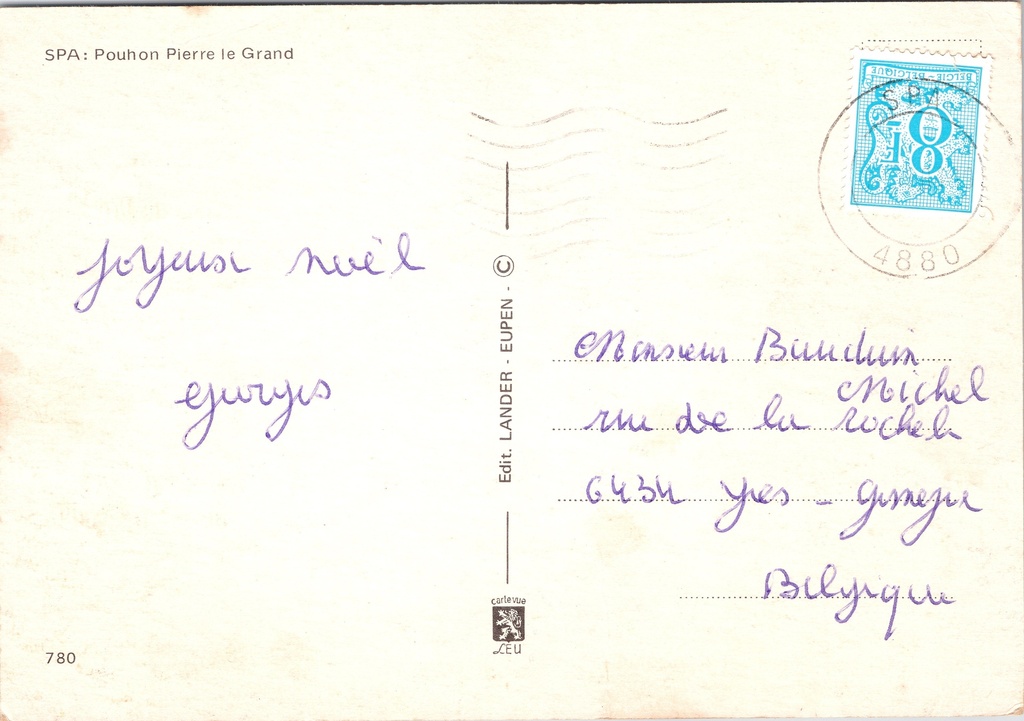 SPA: Pouhon Pierre le Grand
joyeux noël
georges
780
Edit. LANDER - EUPEN - ©
carte vue
LEU
BELGIË - BELGIQUE
8F
SPA
4880
Monsieur Bauduin
Michel
rue de la
6434 Yves - Gomezée
Belgique